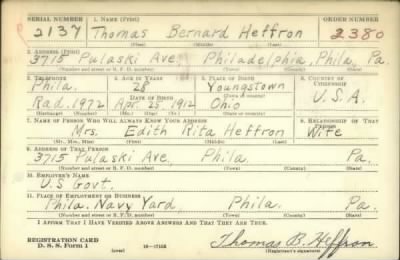 SERIAL NUMBER 1. NAME (Print) ORDER NUMBER
2137 Thomas Bernard Heffron 2380
(First) (Middle) (Last)
2. ADDRESS (Print)
3715 Pulaski Ave. Philadelphia, Phila, Pa.
(Number and street or R. F. D. number) (Town) (County) (State)
3. TELEPHONE 4. AGE IN YEARS 5. PLACE OF BIRTH 6. COUNTRY OF CITIZENSHIP
Phila. 28 Youngstown
DATE OF BIRTH (Town or county)
Rad. 1972 Apr. 23, 1912 Ohio U.S.A.
(Exchange) (Number) (Mo.) (Day) (Yr.) (State or country)
7. NAME OF PERSON WHO WILL ALWAYS KNOW YOUR ADDRESS 8. RELATIONSHIP OF THAT PERSON
Mrs. Edith Rita Heffron Wife
(Mr., Mrs., Miss) (First) (Middle) (Last)
9. ADDRESS OF THAT PERSON
3715 Pulaski Ave, Phila. Pa.
(Number and street or R. F. D. number) (Town) (County) (State)
10. EMPLOYER'S NAME
U.S Govt.
11. PLACE OF EMPLOYMENT OR BUSINESS
Phila. Navy Yard, Phila. Pa.
(Number and street or R. F. D. number) (Town) (County) (State)
I AFFIRM THAT I HAVE VERIFIED ABOVE ANSWERS AND THAT THEY ARE TRUE.
REGISTRATION CARD
D. S. S. Form 1 (over) 16—17105 Thomas B. Heffron
(Registrant's signature)